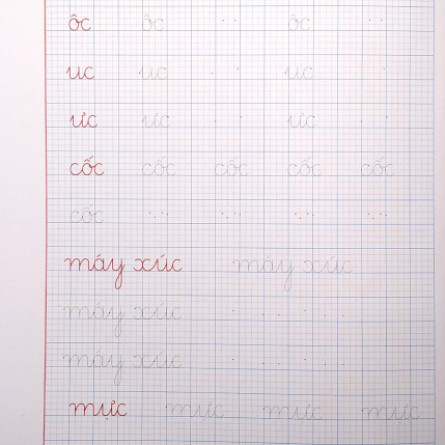 ôc ôc ôc
uc uc uc
ưc ưc ưc
cốc cốc cốc cốc cốc
cốc
máy xúc máy xúc
máy xúc
máy xúc
mực mực mực mực